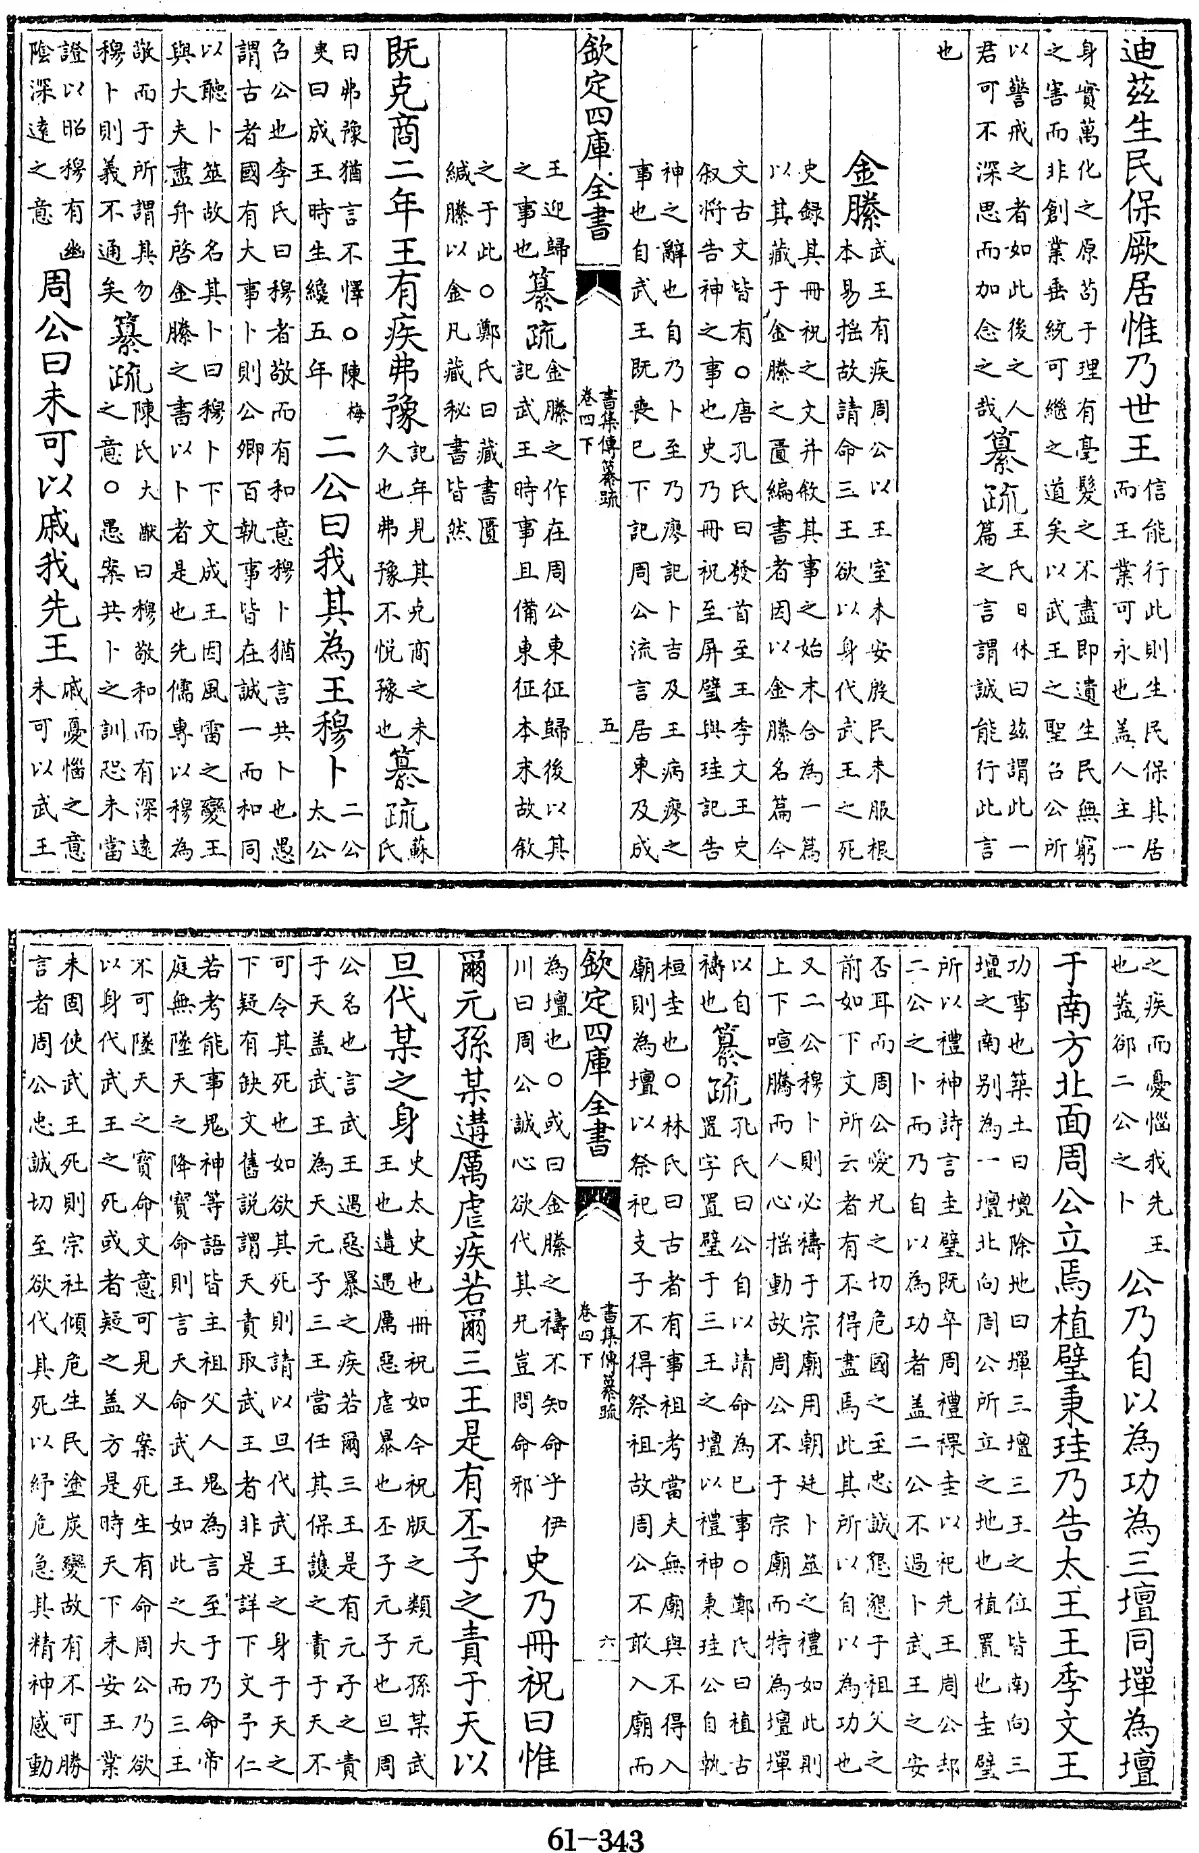 迪茲生民保厥居惟乃世王
信能行此則生民保其居
而王業可永也蓋人主一
身實萬化之原茍于理有毫髮之不盡即遺生民無窮
之害而非創業垂統可繼之道矣以武王之聖召公所
以警戒之者如此後之人
君可不深思而加念之哉
纂疏
王氏日休曰茲謂此一
篇之言謂誠能行此言
也
金縢
武王有疾周公以王室未安殷民未服根
本易搖故請命三王欲以身代武王之死
史錄其冊祝之文并敘其事之始末合為一篇
以其藏于金縢之匱編書者因以金縢名篇今
文古文皆有○唐孔氏曰發首至王李文王史
叙將告神之事也史乃冊祝至屏璧與珪記告
神之辭也自乃卜至乃廖記卜吉及王病瘳之
事也自武王既喪已下記周公流言居東及成
欽定四庫全書
書集傳纂疏
卷四下
五
王迎歸
之事也
纂疏
金縢之作在周公東征歸後以其
記武王時事且備東征本末故敘
之于此○鄭氏曰藏書匱
緘縢以金凡藏秘書皆然
既克商二年王有疾弗豫
記年見其克商之未
久也弗豫不悅豫也
纂疏
蘇
氏
曰弗豫猶言不懌○陳梅
叟曰成王時生纔五年
二公曰我其為王穆卜
二公
太公
召公也李氏曰穆者敬而有和意穆卜猶言共卜也愚
謂古者國有大事卜則公卿百執事皆在誠一而和同
以聽卜筮故名其卜曰穆卜下文成王因風雷之變王
與大夫盡弁啓金縢之書以卜者是也先儒專以穆為
敬而于所謂其勿
穆卜則義不通矣
纂疏
陳氏大猷曰穆敬和而有深遠
之意○愚案共卜之訓恐未當
證以昭穆有幽
陰深遠之意
周公曰未可以戚我先王
戚憂惱之意
未可以武王
之疾而憂惱我先王
也蓋卻二公之卜
公乃自以為功為三壇同墠為壇
于南方北面周公立焉植璧秉珪乃告太王王季文王
功事也築土曰壇除地曰墠三壇三王之位皆南向三
壇之南别為一壇北向周公所立之地也植置也圭璧
所以禮神詩言圭璧既卒周禮祼圭以祀先王周公却
二公之卜而乃自以為功者蓋二公不過卜武王之安
否耳而周公愛兄之切危國之至忠誠懇懇于祖父之
前如下文所云者有不得盡焉此其所以自以為功也
又二公穆卜則必禱于宗廟用朝廷卜筮之禮如此則
上下喧騰而人心搖動故周公不于宗廟而特為壇墠
以自
禱也
纂疏
孔氏曰公自以請命為已事○鄭氏曰植古
置字置璧于三王之壇以禮神秉珪公自執
桓圭也○林氏曰古者有事祖考當夫無廟與不得入
廟則為壇以祭祀支子不得祭祖故周公不敢入廟而
欽定四庫全書
書集傳纂疏
卷四下
六
為壇也○或曰金縢之禱不知命乎伊
川曰周公誠心欲代其兄豈問命邪
史乃冊祝曰惟
爾元孫某遘厲虐疾若爾三王是有丕子之責于天以
旦代某之身
史太史也冊祝如今祝版之類元孫某武
王也遘遇厲惡虐暴也丕子元子也旦周
公名也言武王遇惡暴之疾若爾三王是有元子之責
于天蓋武王為天元子三王當任其保護之責于天不
可令其死也如欲其死則請以旦代武王之身于天之
下疑有缺文舊說謂天責取武王者非是詳下文予仁
若考能事鬼神等語皆主祖父人鬼為言至于乃命帝
庭無墜天之降寶命則言天命武王如此之大而三王
不可墜天之寶命文意可見又案死生有命周公乃欲
以身代武王之死或者疑之蓋方是時天下未安王業
未固使武王死則宗社傾危生民塗炭變故有不可勝
言者周公忠誠切至欲代其死以紓危急其精神感動
61-343